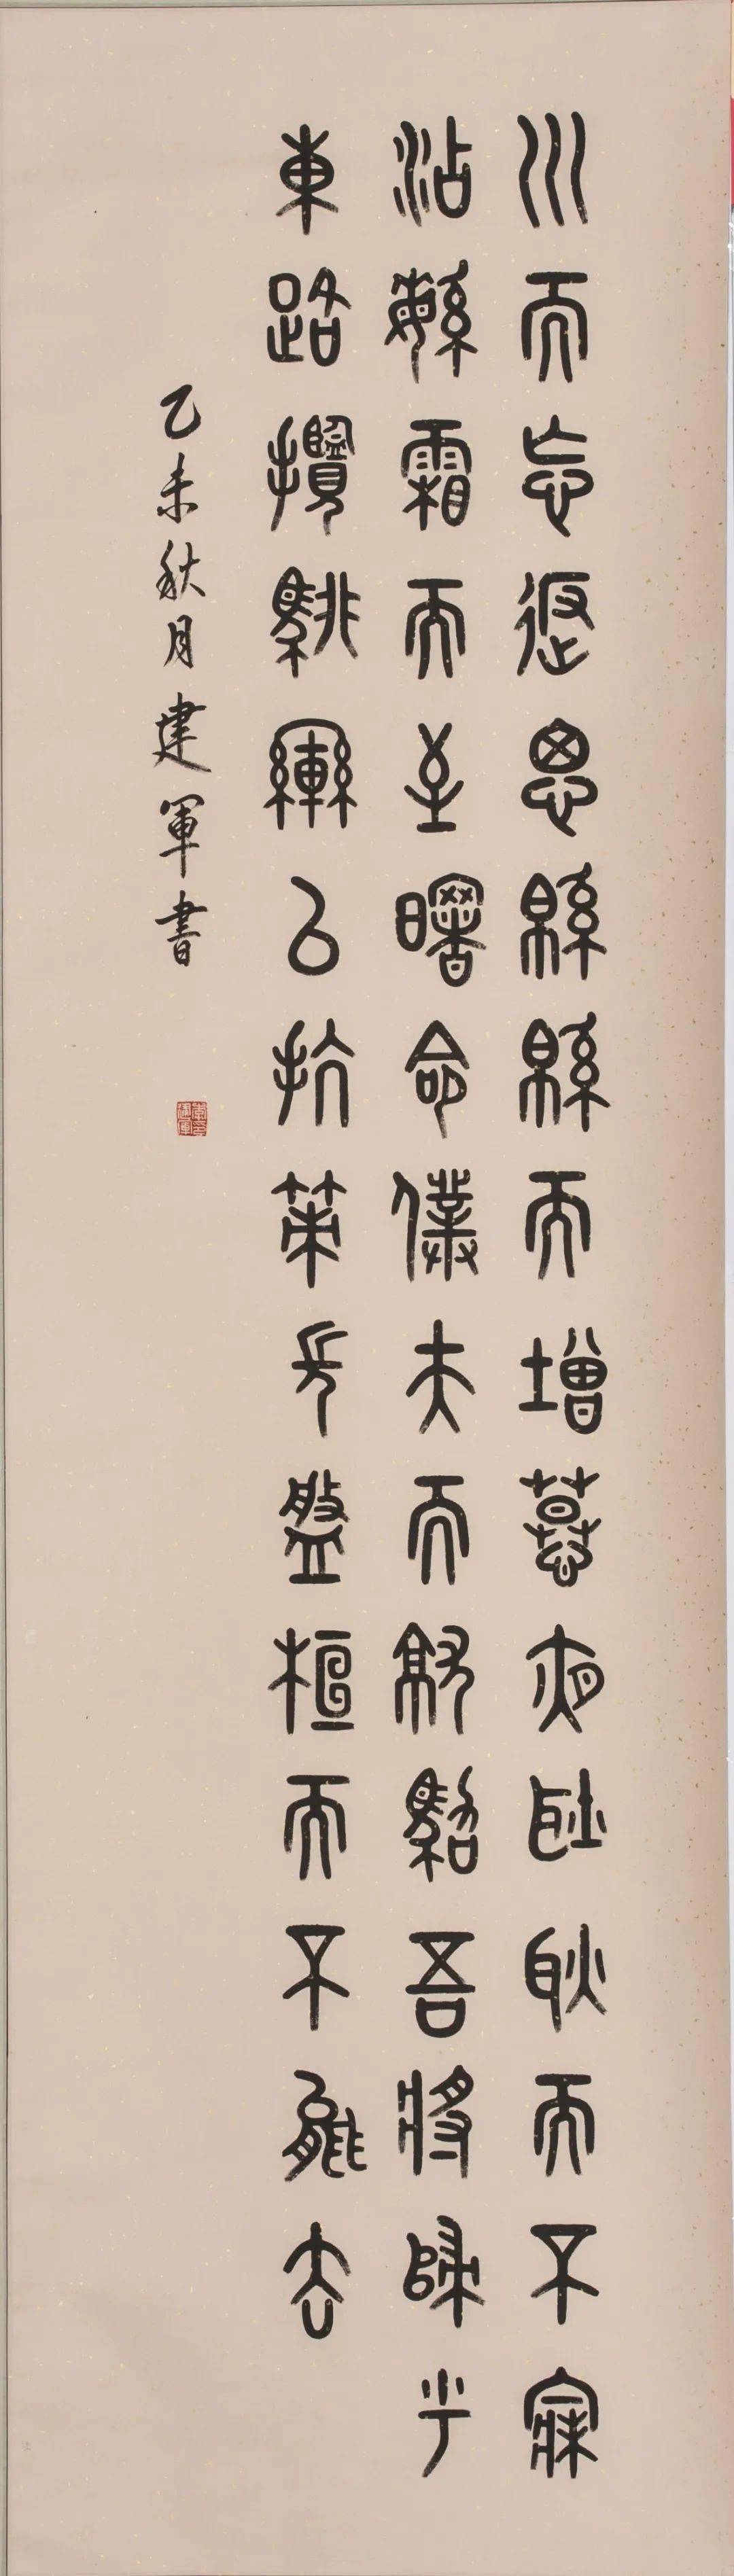 川而忘返思緜緜而增慕夜耿耿而不寐
沾繁霜而至曙命僕夫而就駕吾將歸乎
東路攬騑轡以抗策悵盤桓而不能去
乙未秋月建軍書